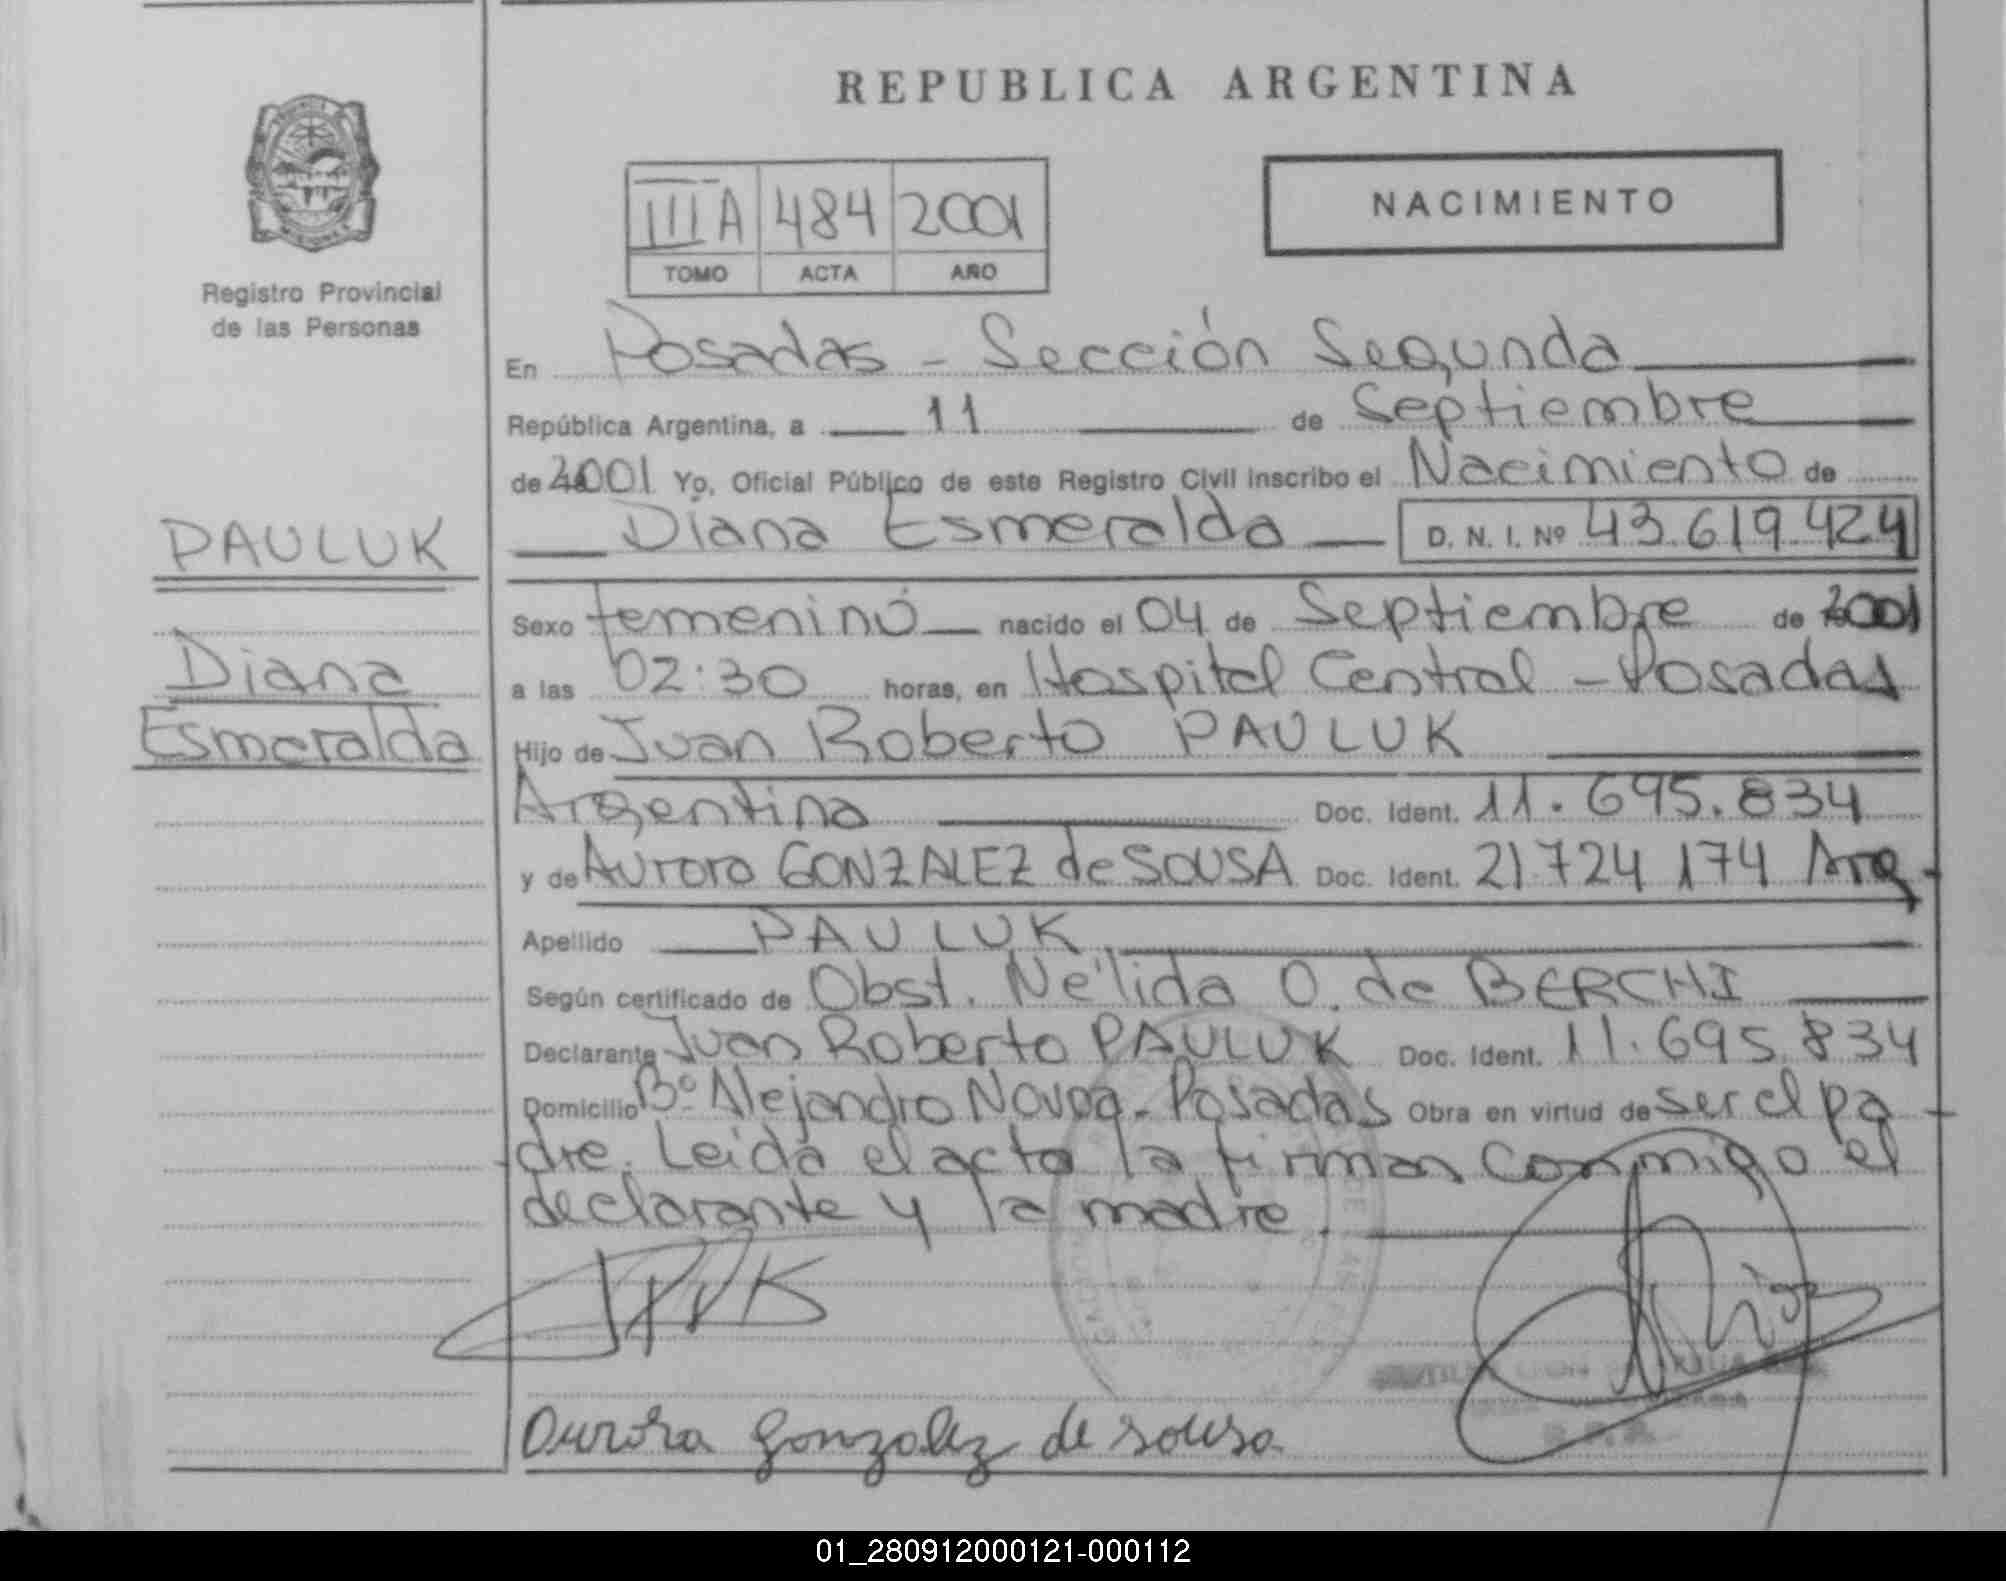 REPUBLICA ARGENTINA
NACIMIENTO
III A 484 2001
TOMO ACTA AÑO
Registro Provincial
de las Personas
PAULUK
Diana
Esmeralda
En Posadas - Sección Segunda
República Argentina, a 11 de Septiembre
de 2001 Yo, Oficial Público de este Registro Civil inscribo el Nacimiento de
Diana Esmeralda D. N. I. Nº 43.619.424
Sexo femenino nacido el 04 de Septiembre de 2001
a las 02:30 horas, en Hospital Central - Posadas
Hijo de Juan Roberto PAULUK
Argentina Doc. Ident. 11.695.834
y de Aurora GONZALEZ de SOUSA Doc. Ident. 21.724.174 Arg.
Apellido PAULUK
Según certificado de Obst. Nélida O. de BERCHI
Declarante Juan Roberto PAULUK Doc. Ident. 11.695.834
Domicilio Bº Alejandro Novoa - Posadas Obra en virtud de ser el pa
dre. Leida el acta la firman conmigo el
declarante y la madre.
Aurora Gonzalez de sousa
01_280912000121-000112